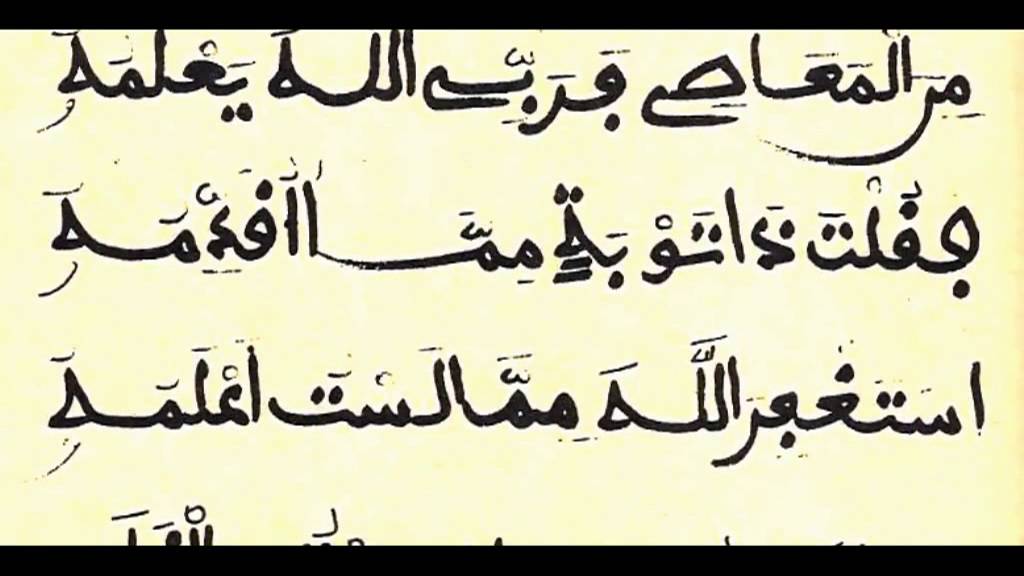 مِنَ الْمَعَاصِي فَرَبِّي اللهُ يَعْلَمُهُ
فَقُلْتَ ذَا تَوْبَةٍ مِمَّا أُقَدِّمُهُ
اسْتَغْفِرُ اللَّهَ مِمَّا لَسْتُ أَعْلَمُهُ